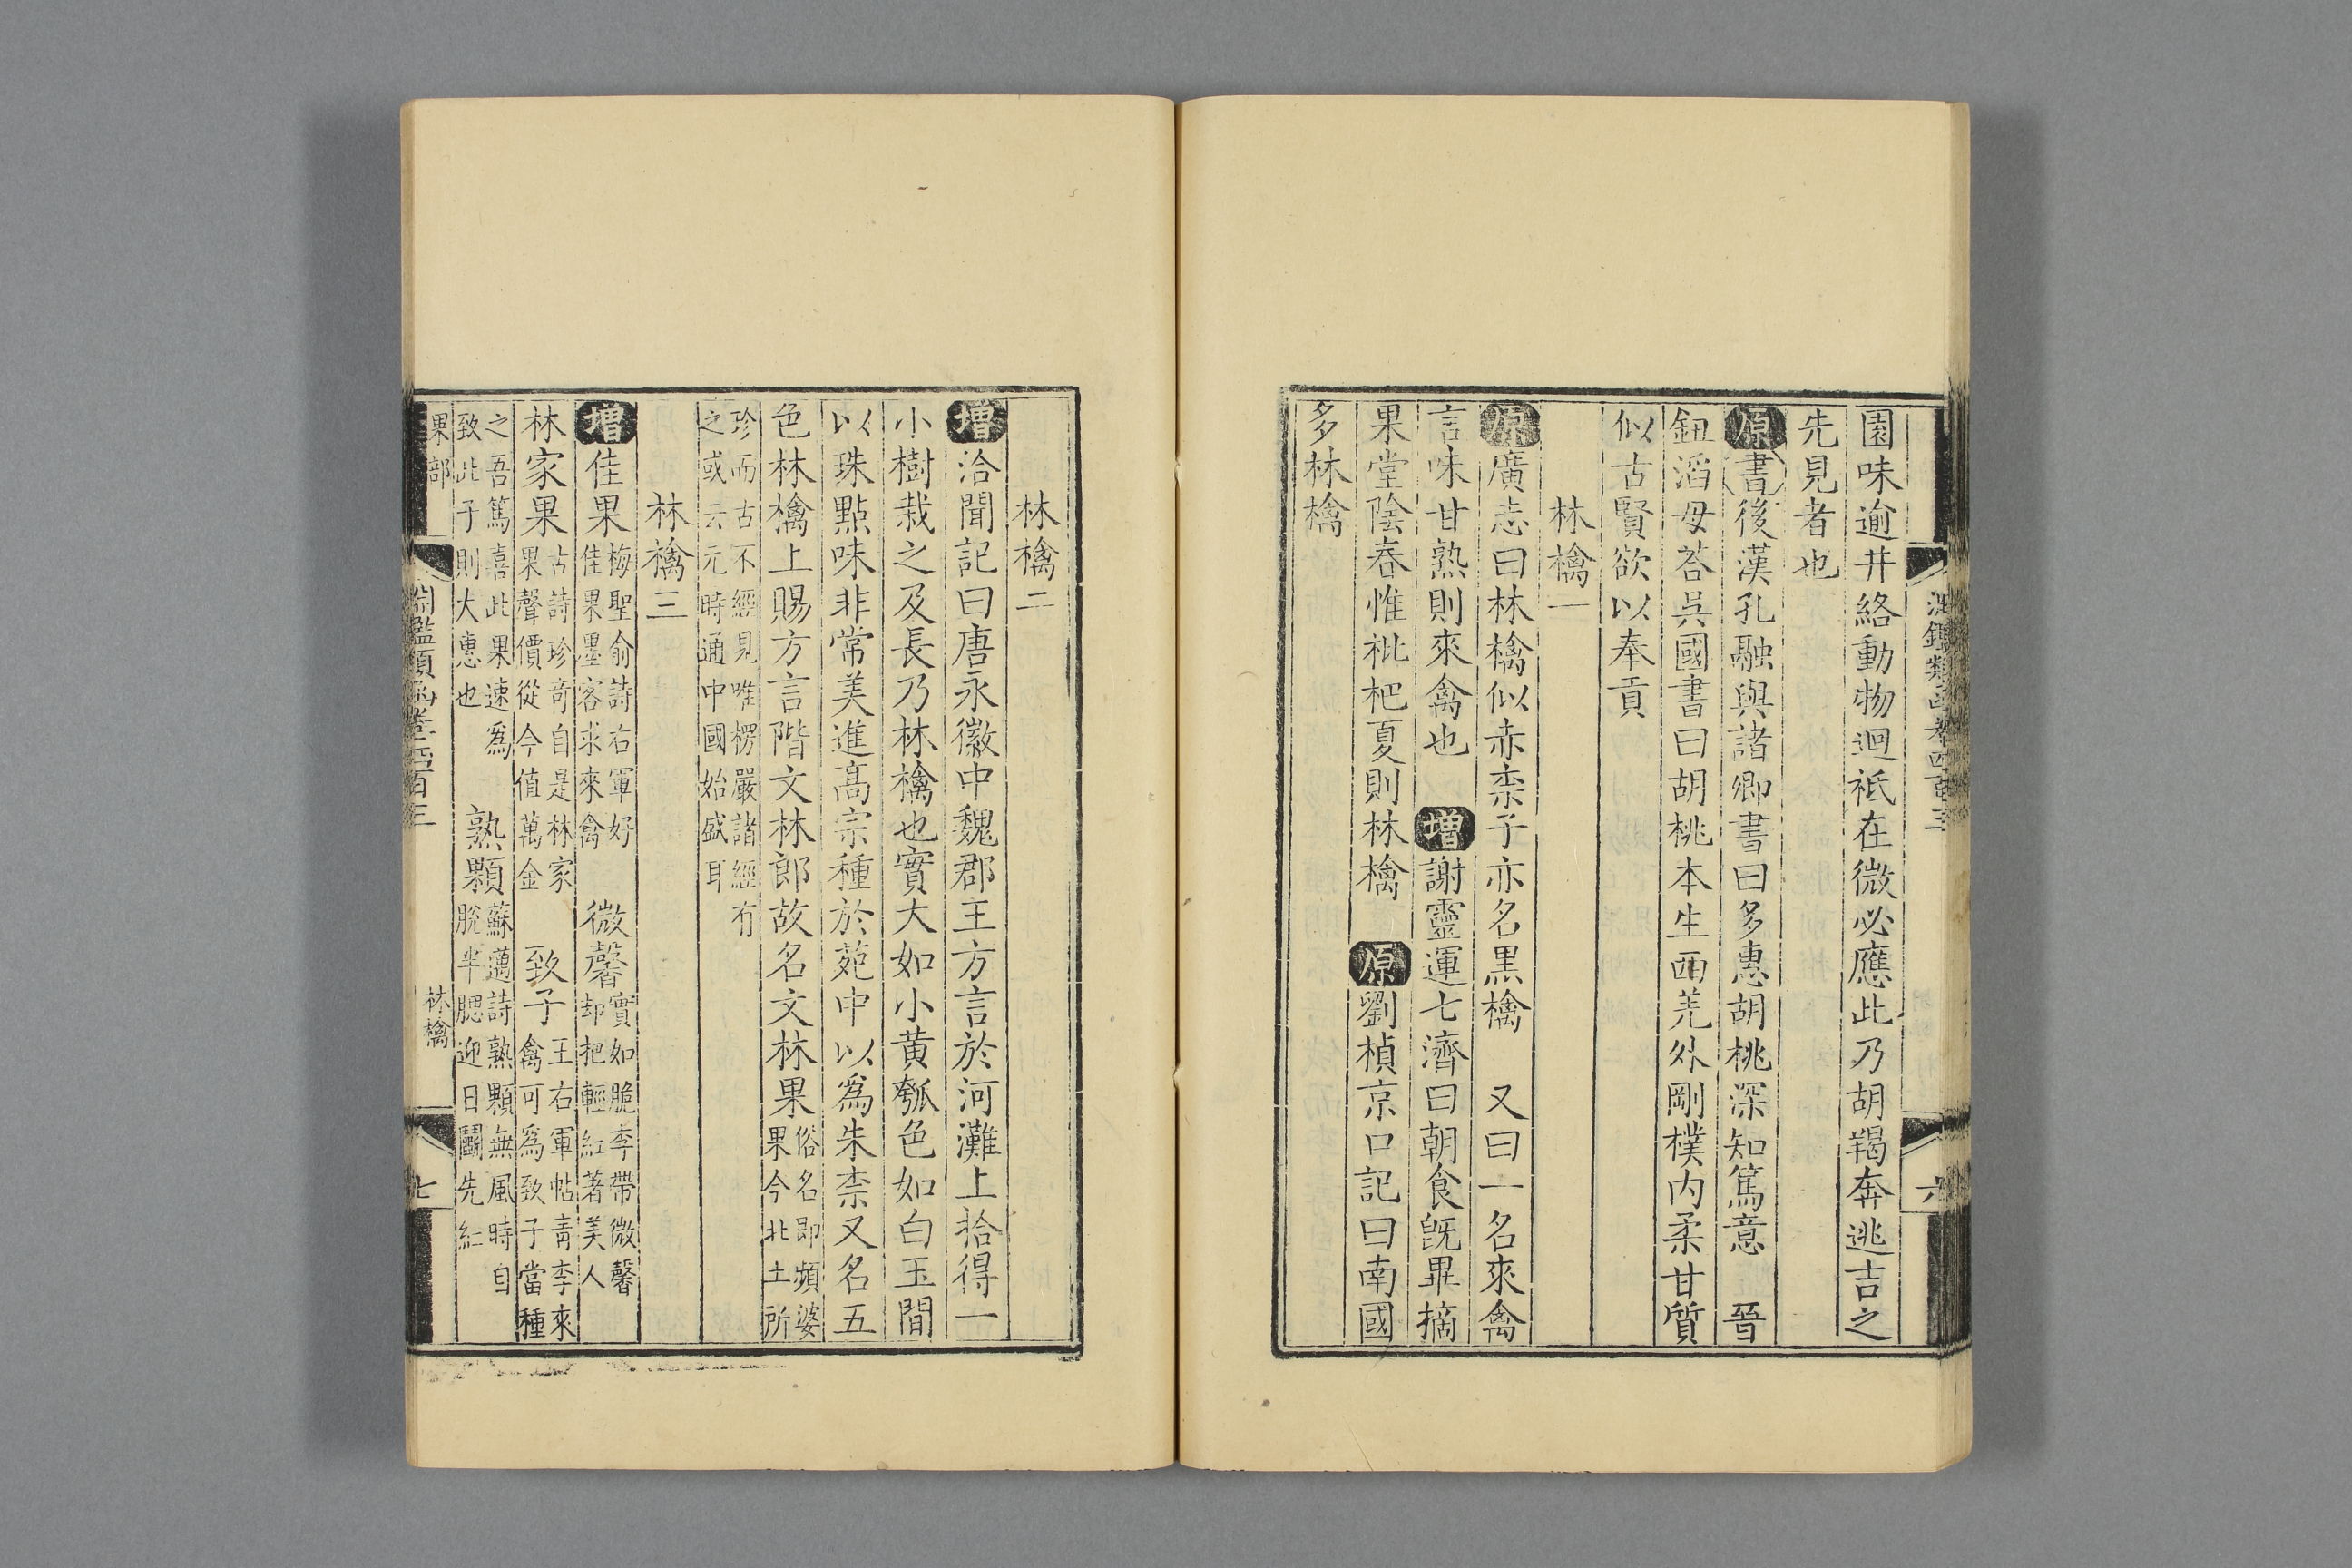 淵鑑類函卷四百三 六
園味逾井絡動物迴祗在微必應此乃胡羯奔逃吉之
先見者也
原書後漢孔融與諸卿書曰多惠胡桃深知篤意 晉
鈕滔母荅吳國書曰胡桃本生西羌外剛樸內柔甘質
似古賢欲以奉貢
林檎一
原廣志曰林檎似赤柰子亦名黑檎 又曰一名來禽
言味甘熟則來禽也 增謝靈運七濟曰朝食既畢摘
果堂陰春惟枇杷夏則林檎 原劉楨京口記曰南國
多林檎
林檎二
增洽聞記曰唐永徽中魏郡王方言於河灘上拾得一
小樹栽之及長乃林檎也實大如小黃瓠色如白玉間
以珠點味非常美進高宗種於苑中以爲朱柰又名五
色林檎上賜方言階文林郎故名文林果俗名即頻婆果今北土所
珍而古不經見唯楞嚴諸經有之或云元時通中國始盛耳
林檎三
增佳果梅聖俞詩右軍好佳果墨客求來禽 微馨實如脆李帶微馨却把輕紅著美人
林家果古詩珍奇自是林家果聲價從今值萬金 致子王右軍帖青李來禽可爲致子當種
之吾篤喜此果速爲致此子則大惠也 熟顆蘇邁詩熟顆無風時自脫半腮迎日鬬先紅
果部 淵鑑類函卷四百三 林檎 七